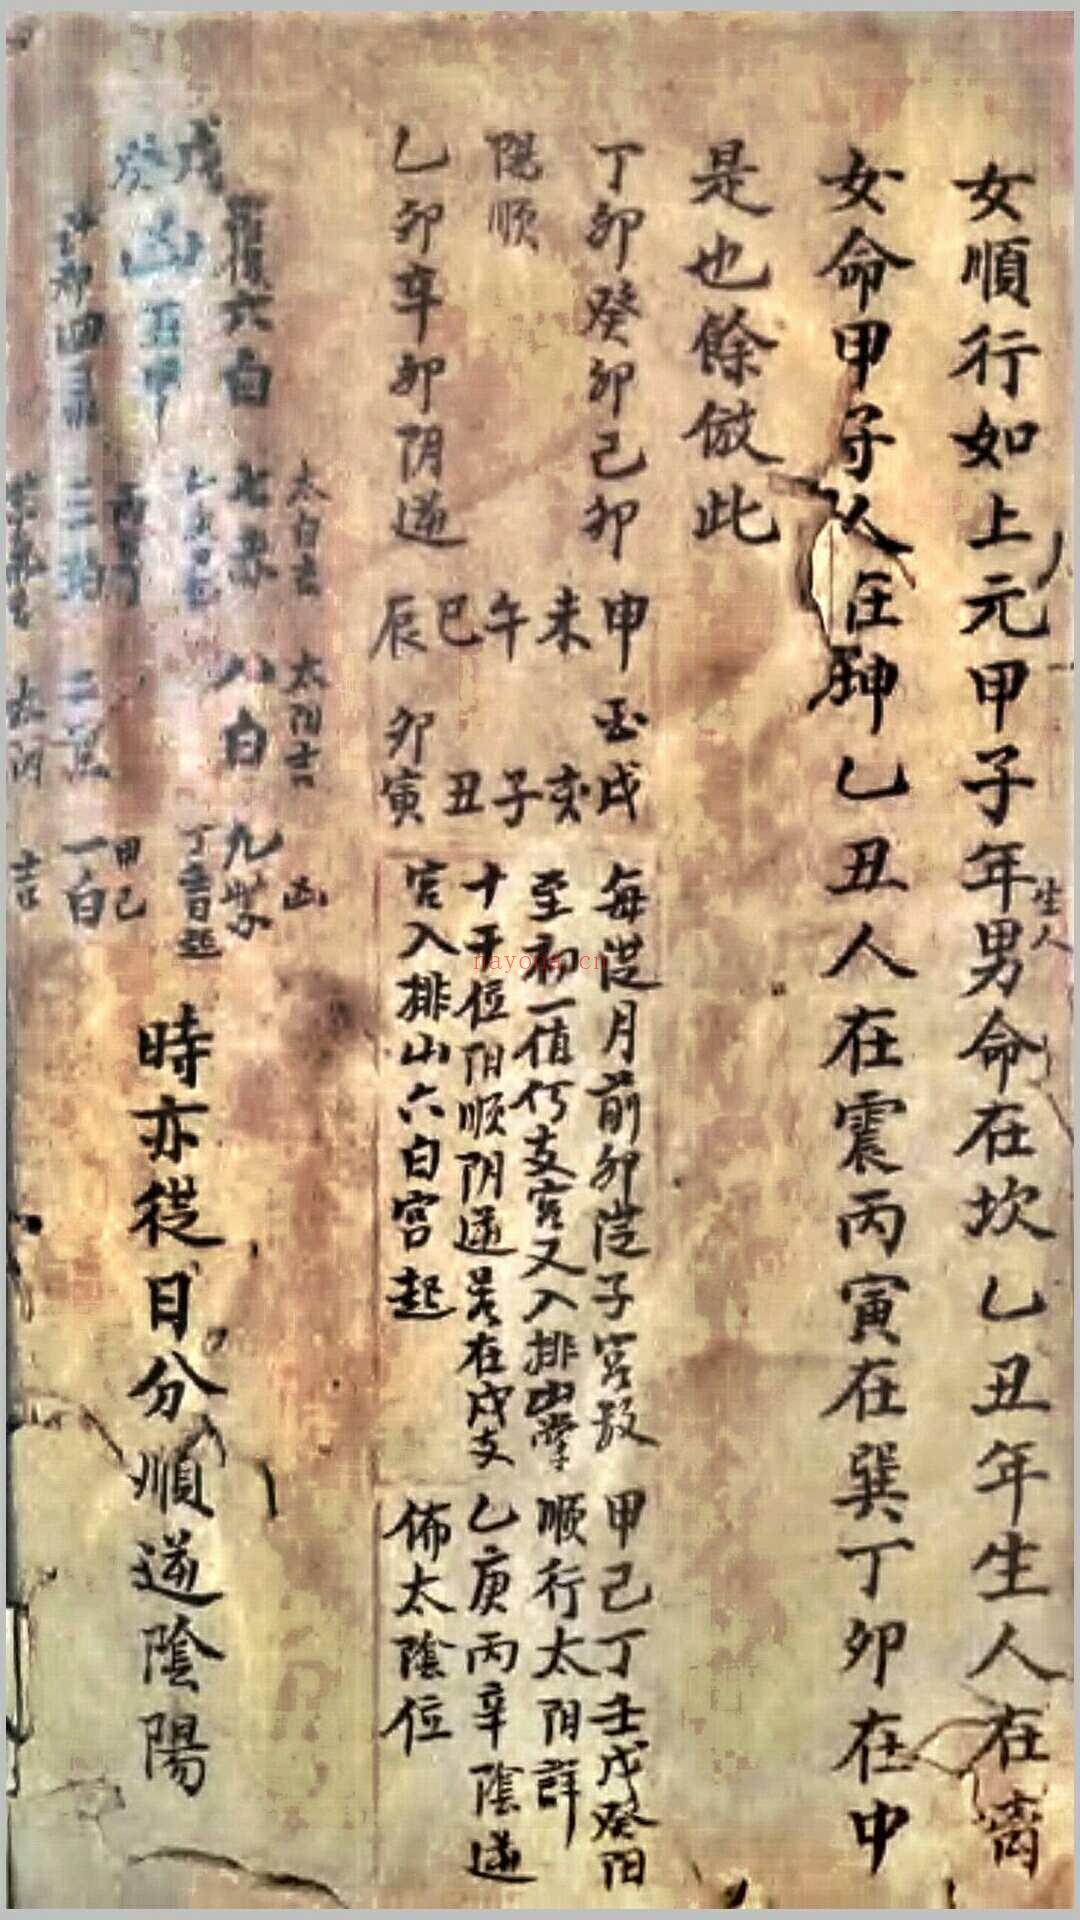 女順行如上元甲子年生人男命在坎乙丑年生人在离
女命甲子人在坤乙丑人在震丙寅在巽丁卯在中
是也餘倣此
丁卯癸卯己卯
陽順
乙卯辛卯阴逆
申酉戌
未亥
午子
巳丑
辰卯寅
每從月前卯從子宮数
至初一值何支宮又入排山掌
十干位阳顺阴逆若在戌支
宮入排山六白宮起
甲己丁壬戊癸阳
顺行太阳詳
乙庚丙辛陰逆
佈太陰位
太白吉 太阳吉 凶
六白 七赤 八白 九紫
戊癸
丁壬日起
凶 五甲
甲己
四 三 二黑 一白
太阴 吉
時亦從日分順逆陰陽
nayona.cn